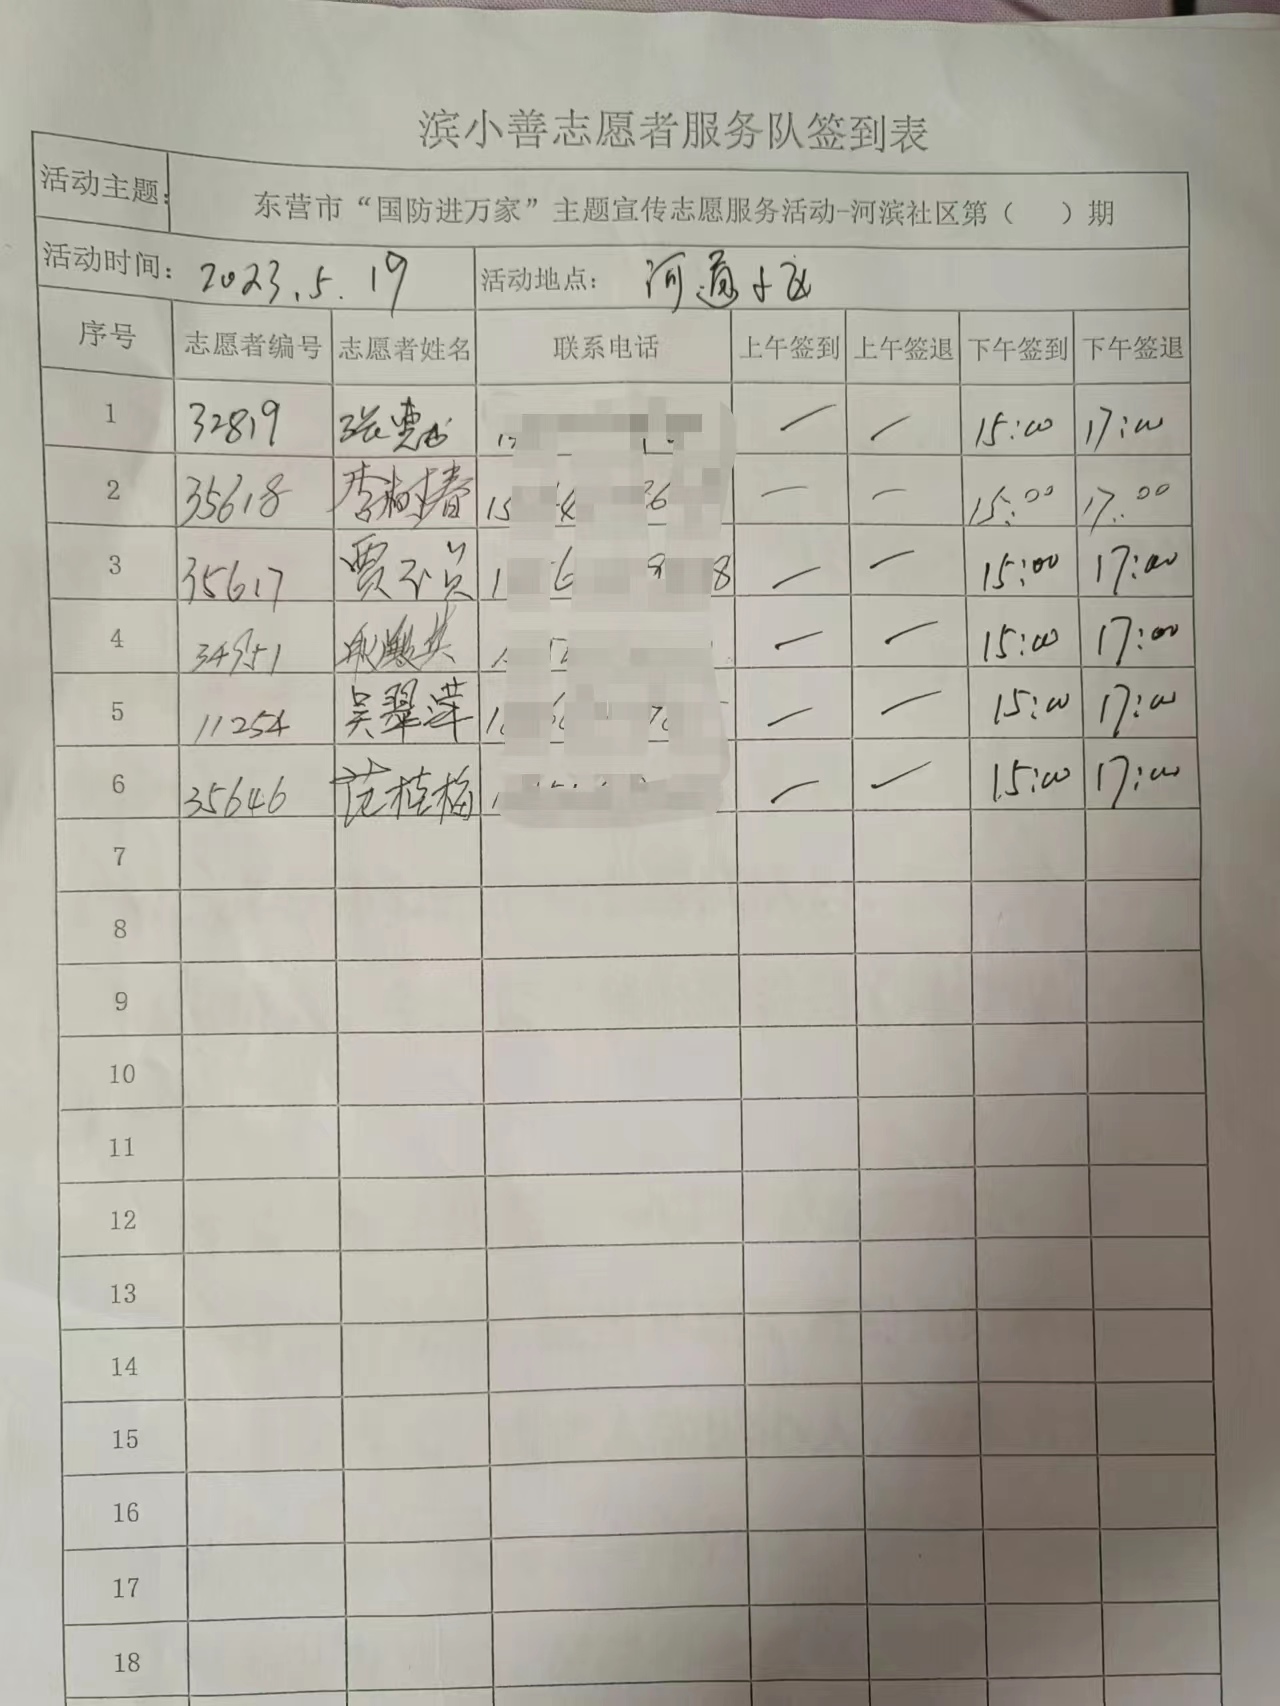 滨小善志愿者服务队签到表
活动主题: 东营市“国防进万家”主题宣传志愿服务活动-河滨社区第（ ）期
活动时间: 2023.5.19 活动地点: 河 小区
序号 志愿者编号 志愿者姓名 联系电话 上午签到 上午签退 下午签到 下午签退
1 32819 张 — — 15:00 17:00
2 35618 李 春 — — 15:00 17:00
3 35617 贾 — — 15:00 17:00
4 34951 — — 15:00 17:00
5 11254 吴翠萍 — — 15:00 17:00
6 35646 范桂梅 — — 15:00 17:00
7
8
9
10
11
12
13
14
15
16
17
18